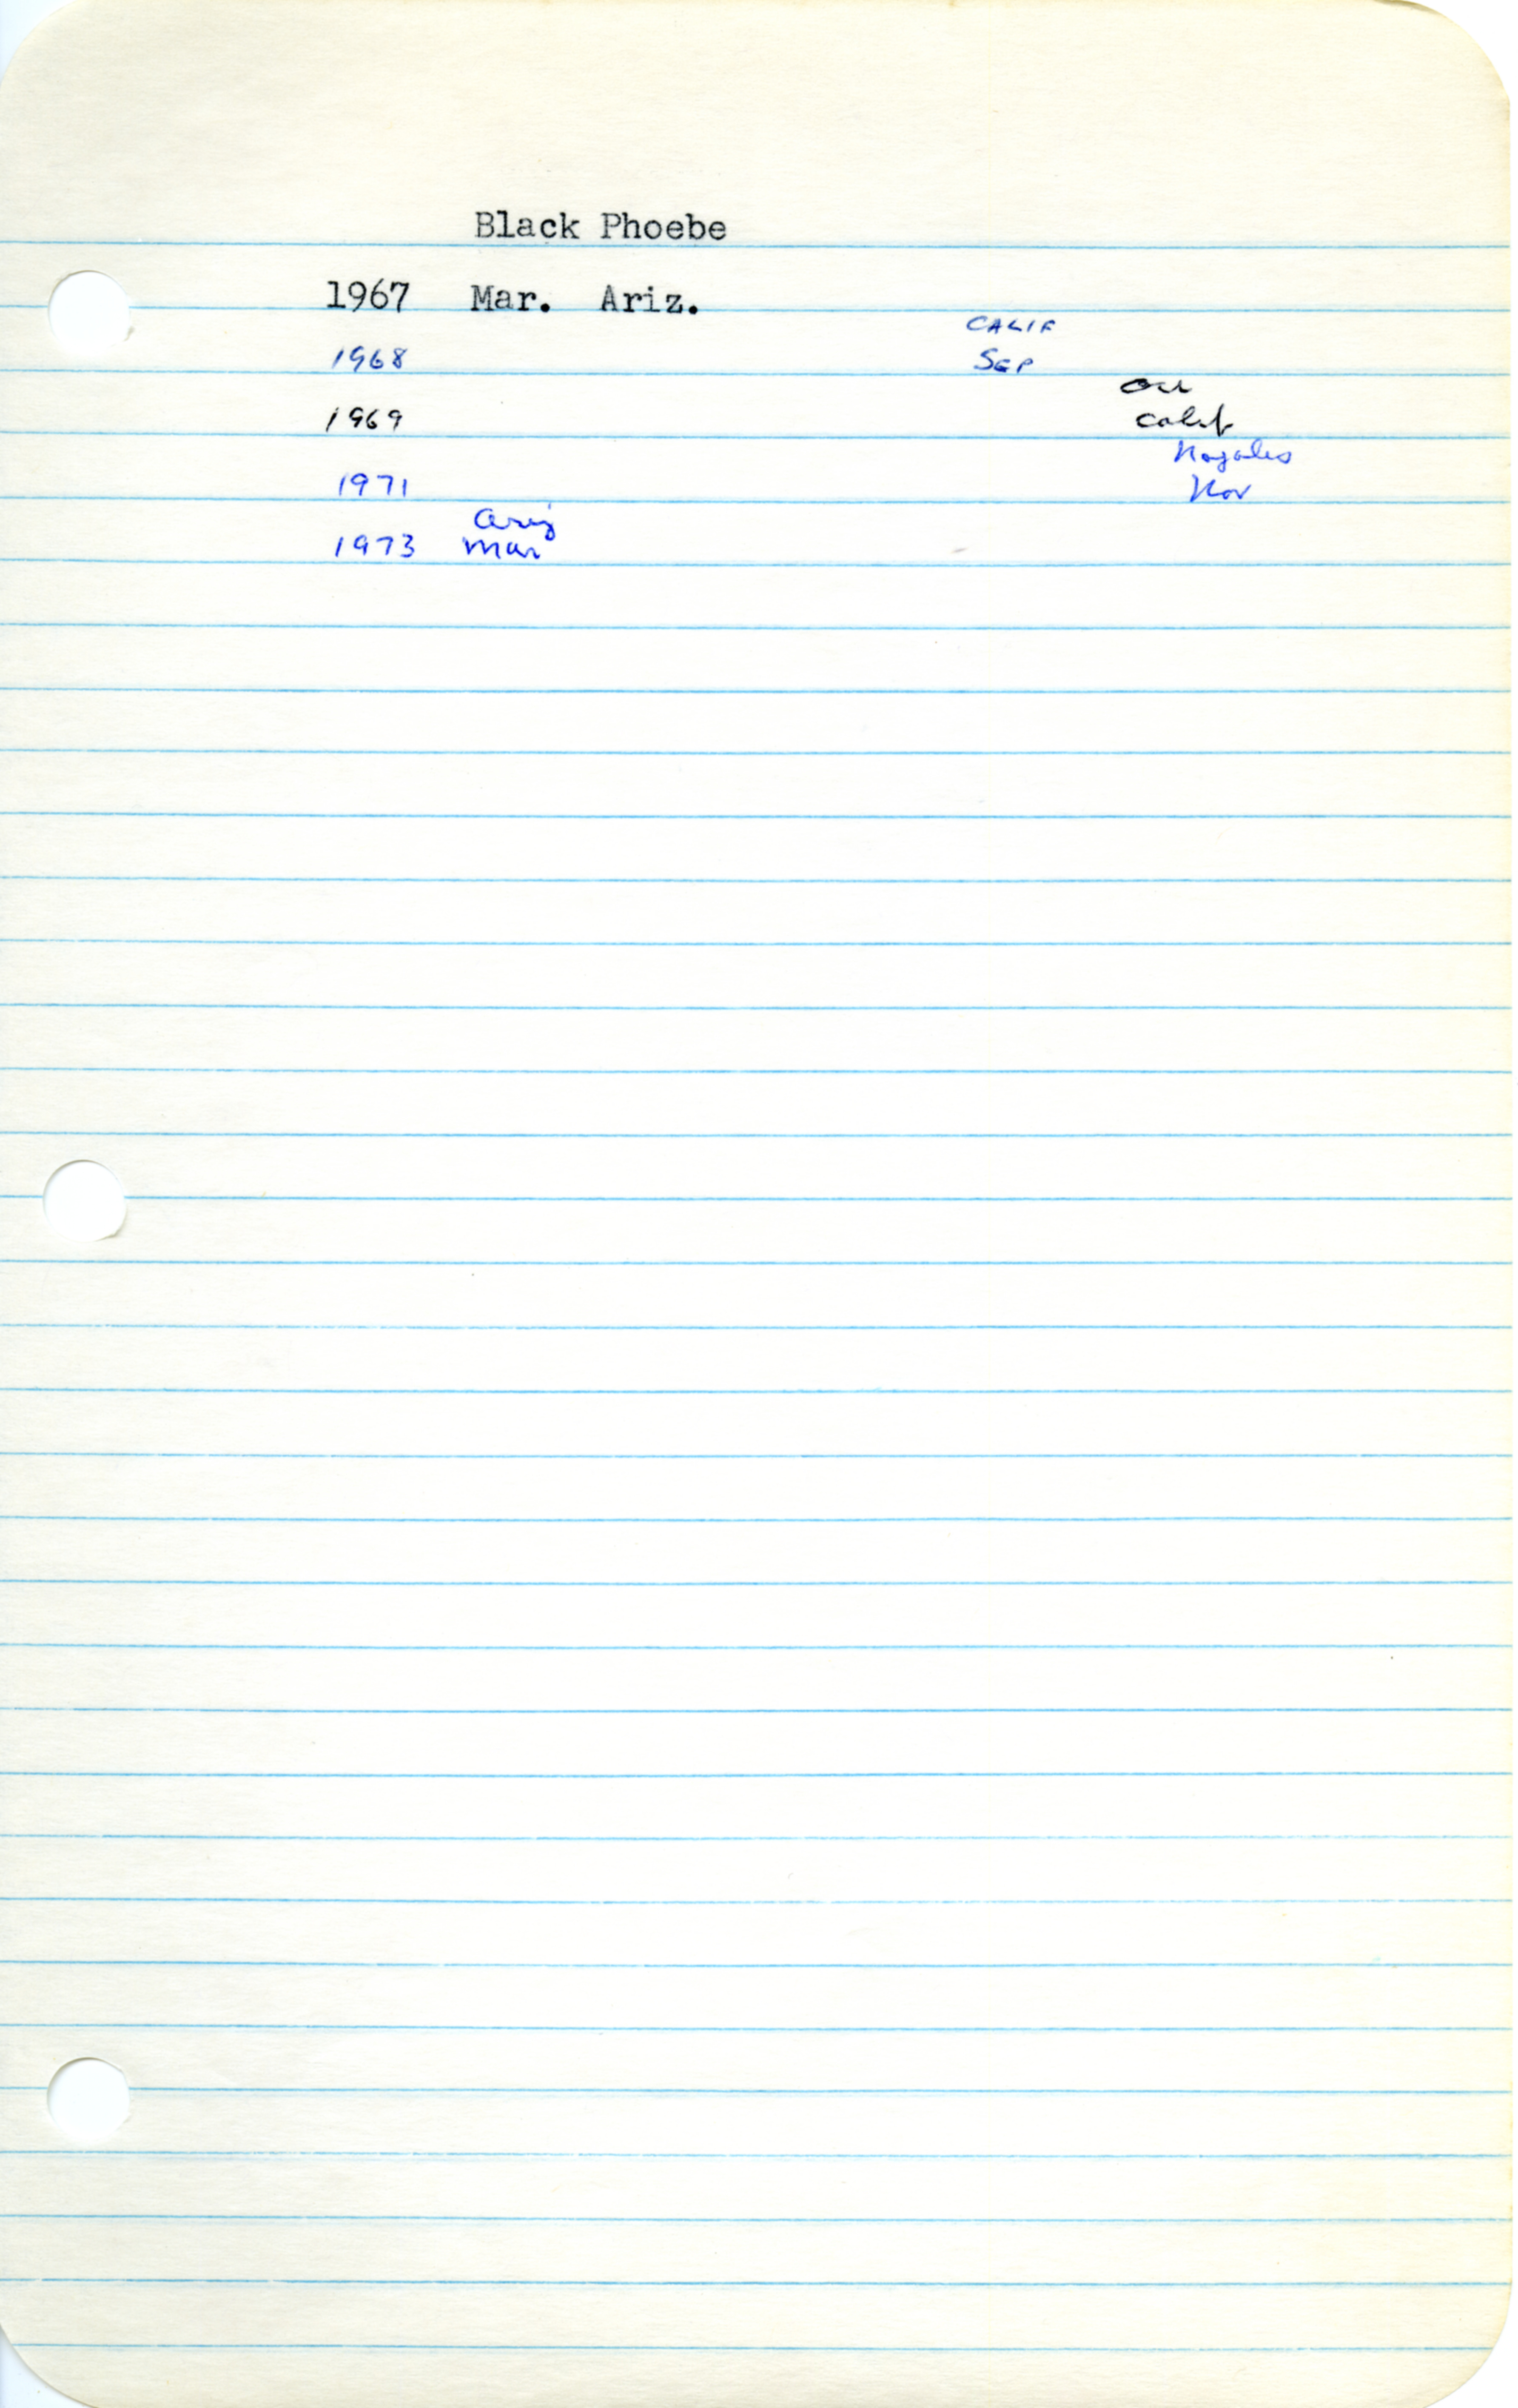 Black Phoebe
1967 Mar. Ariz.
CALIF
1968 SEP
Oct
1969 Calif
Nogales
1971 Nov
Ariz
1973 Mar